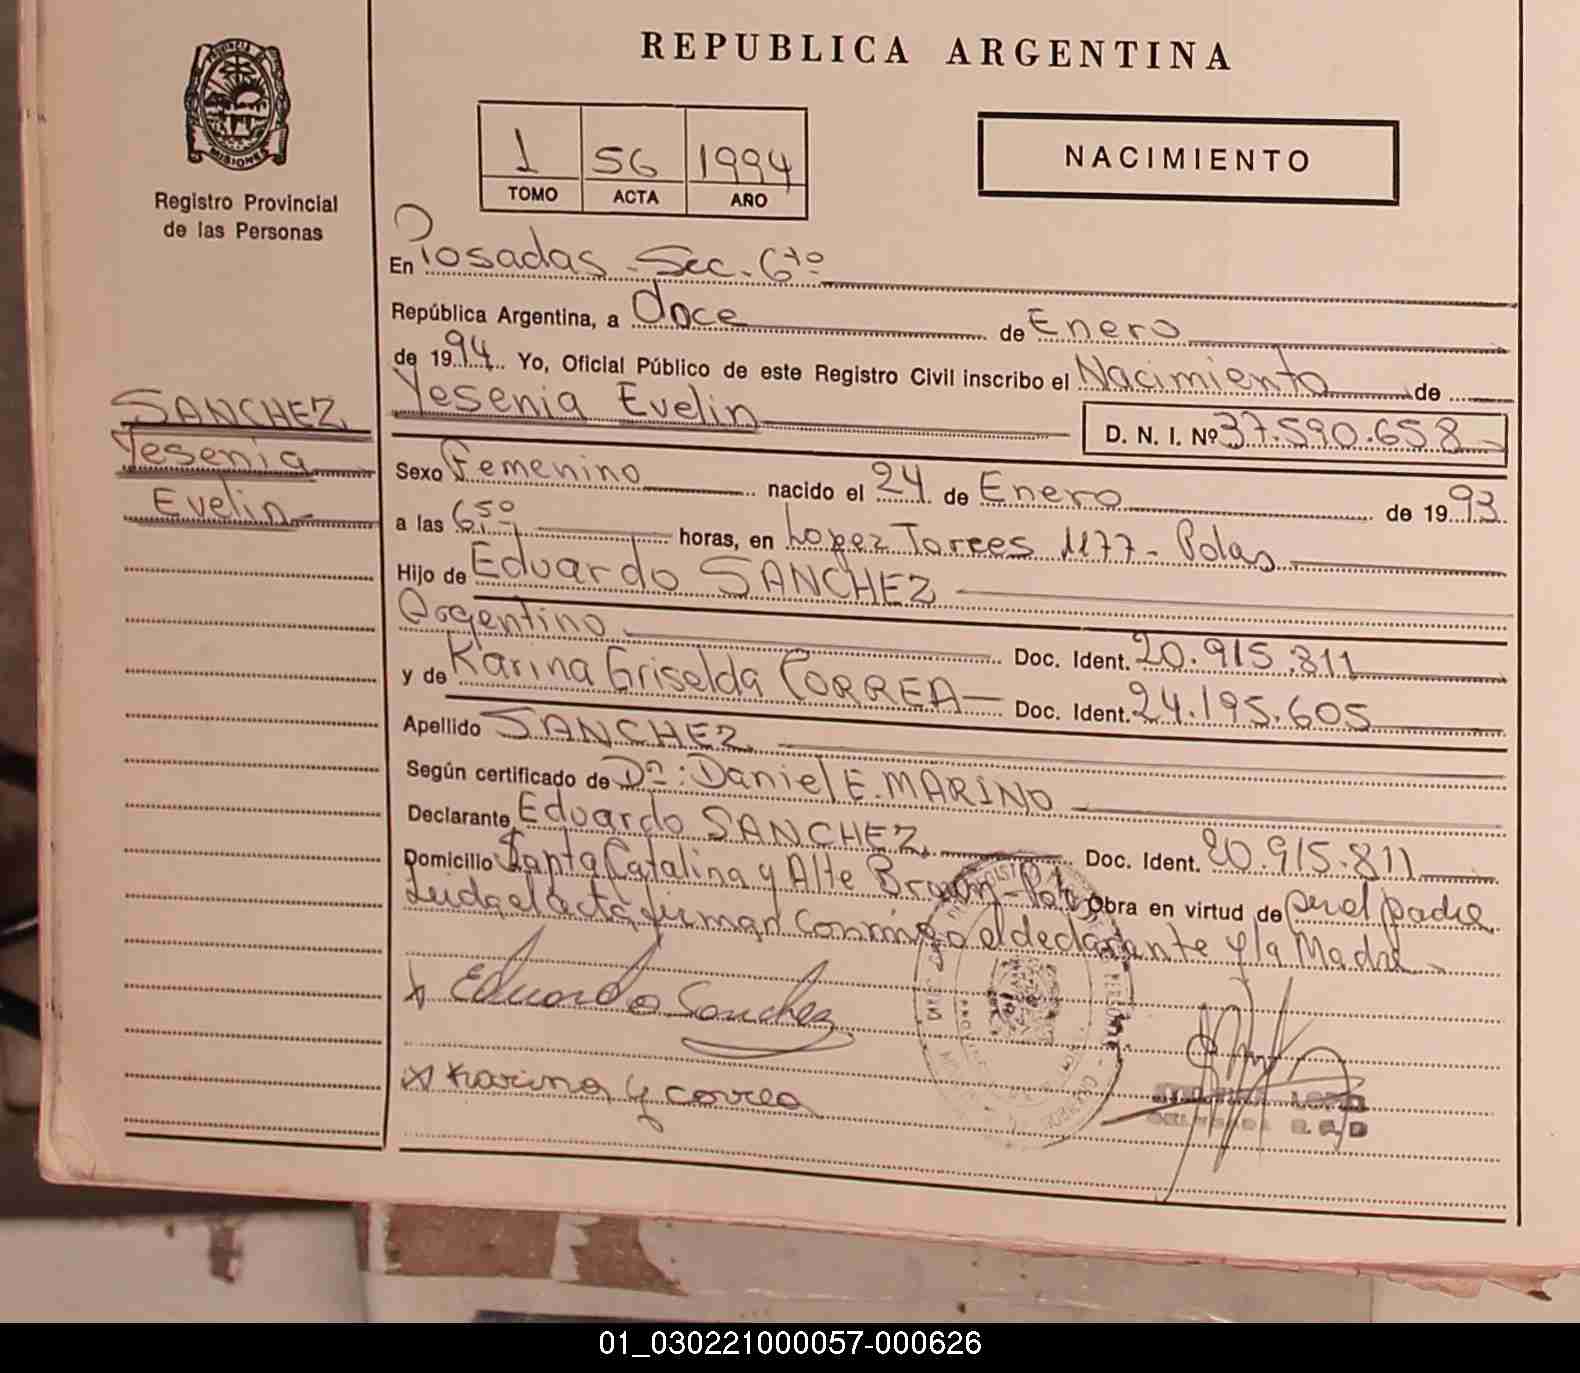 REPUBLICA ARGENTINA
PROVINCIA DE
MISIONES
Registro Provincial
de las Personas
1 56 1994
TOMO ACTA AÑO
NACIMIENTO
En Posadas - Sec. 6ta
República Argentina, a doce de Enero
de 1994. Yo, Oficial Público de este Registro Civil inscribo el Nacimiento de
Yesenia Evelin
D. N. I. Nº 37.590.658
SANCHEZ
Yesenia
Evelin
Sexo Femenino nacido el 24 de Enero de 1993
a las 6,50 horas, en Lopez Torres 1177 - Pdas
Hijo de Eduardo SANCHEZ
Argentino Doc. Ident. 20.915.811
y de Karina Griselda CORREA Doc. Ident. 24.195.605
Apellido SANCHEZ
Según certificado de Dr: Daniel E. MARINO
Declarante Eduardo SANCHEZ Doc. Ident. 20.915.811
Domicilio Santa Catalina y Alte Brown - Obra en virtud de ser el padre
Leida el acta firman conmigo el declarante y la Madre
x Eduardo Sanchez
x Karina y correa
01_030221000057-000626